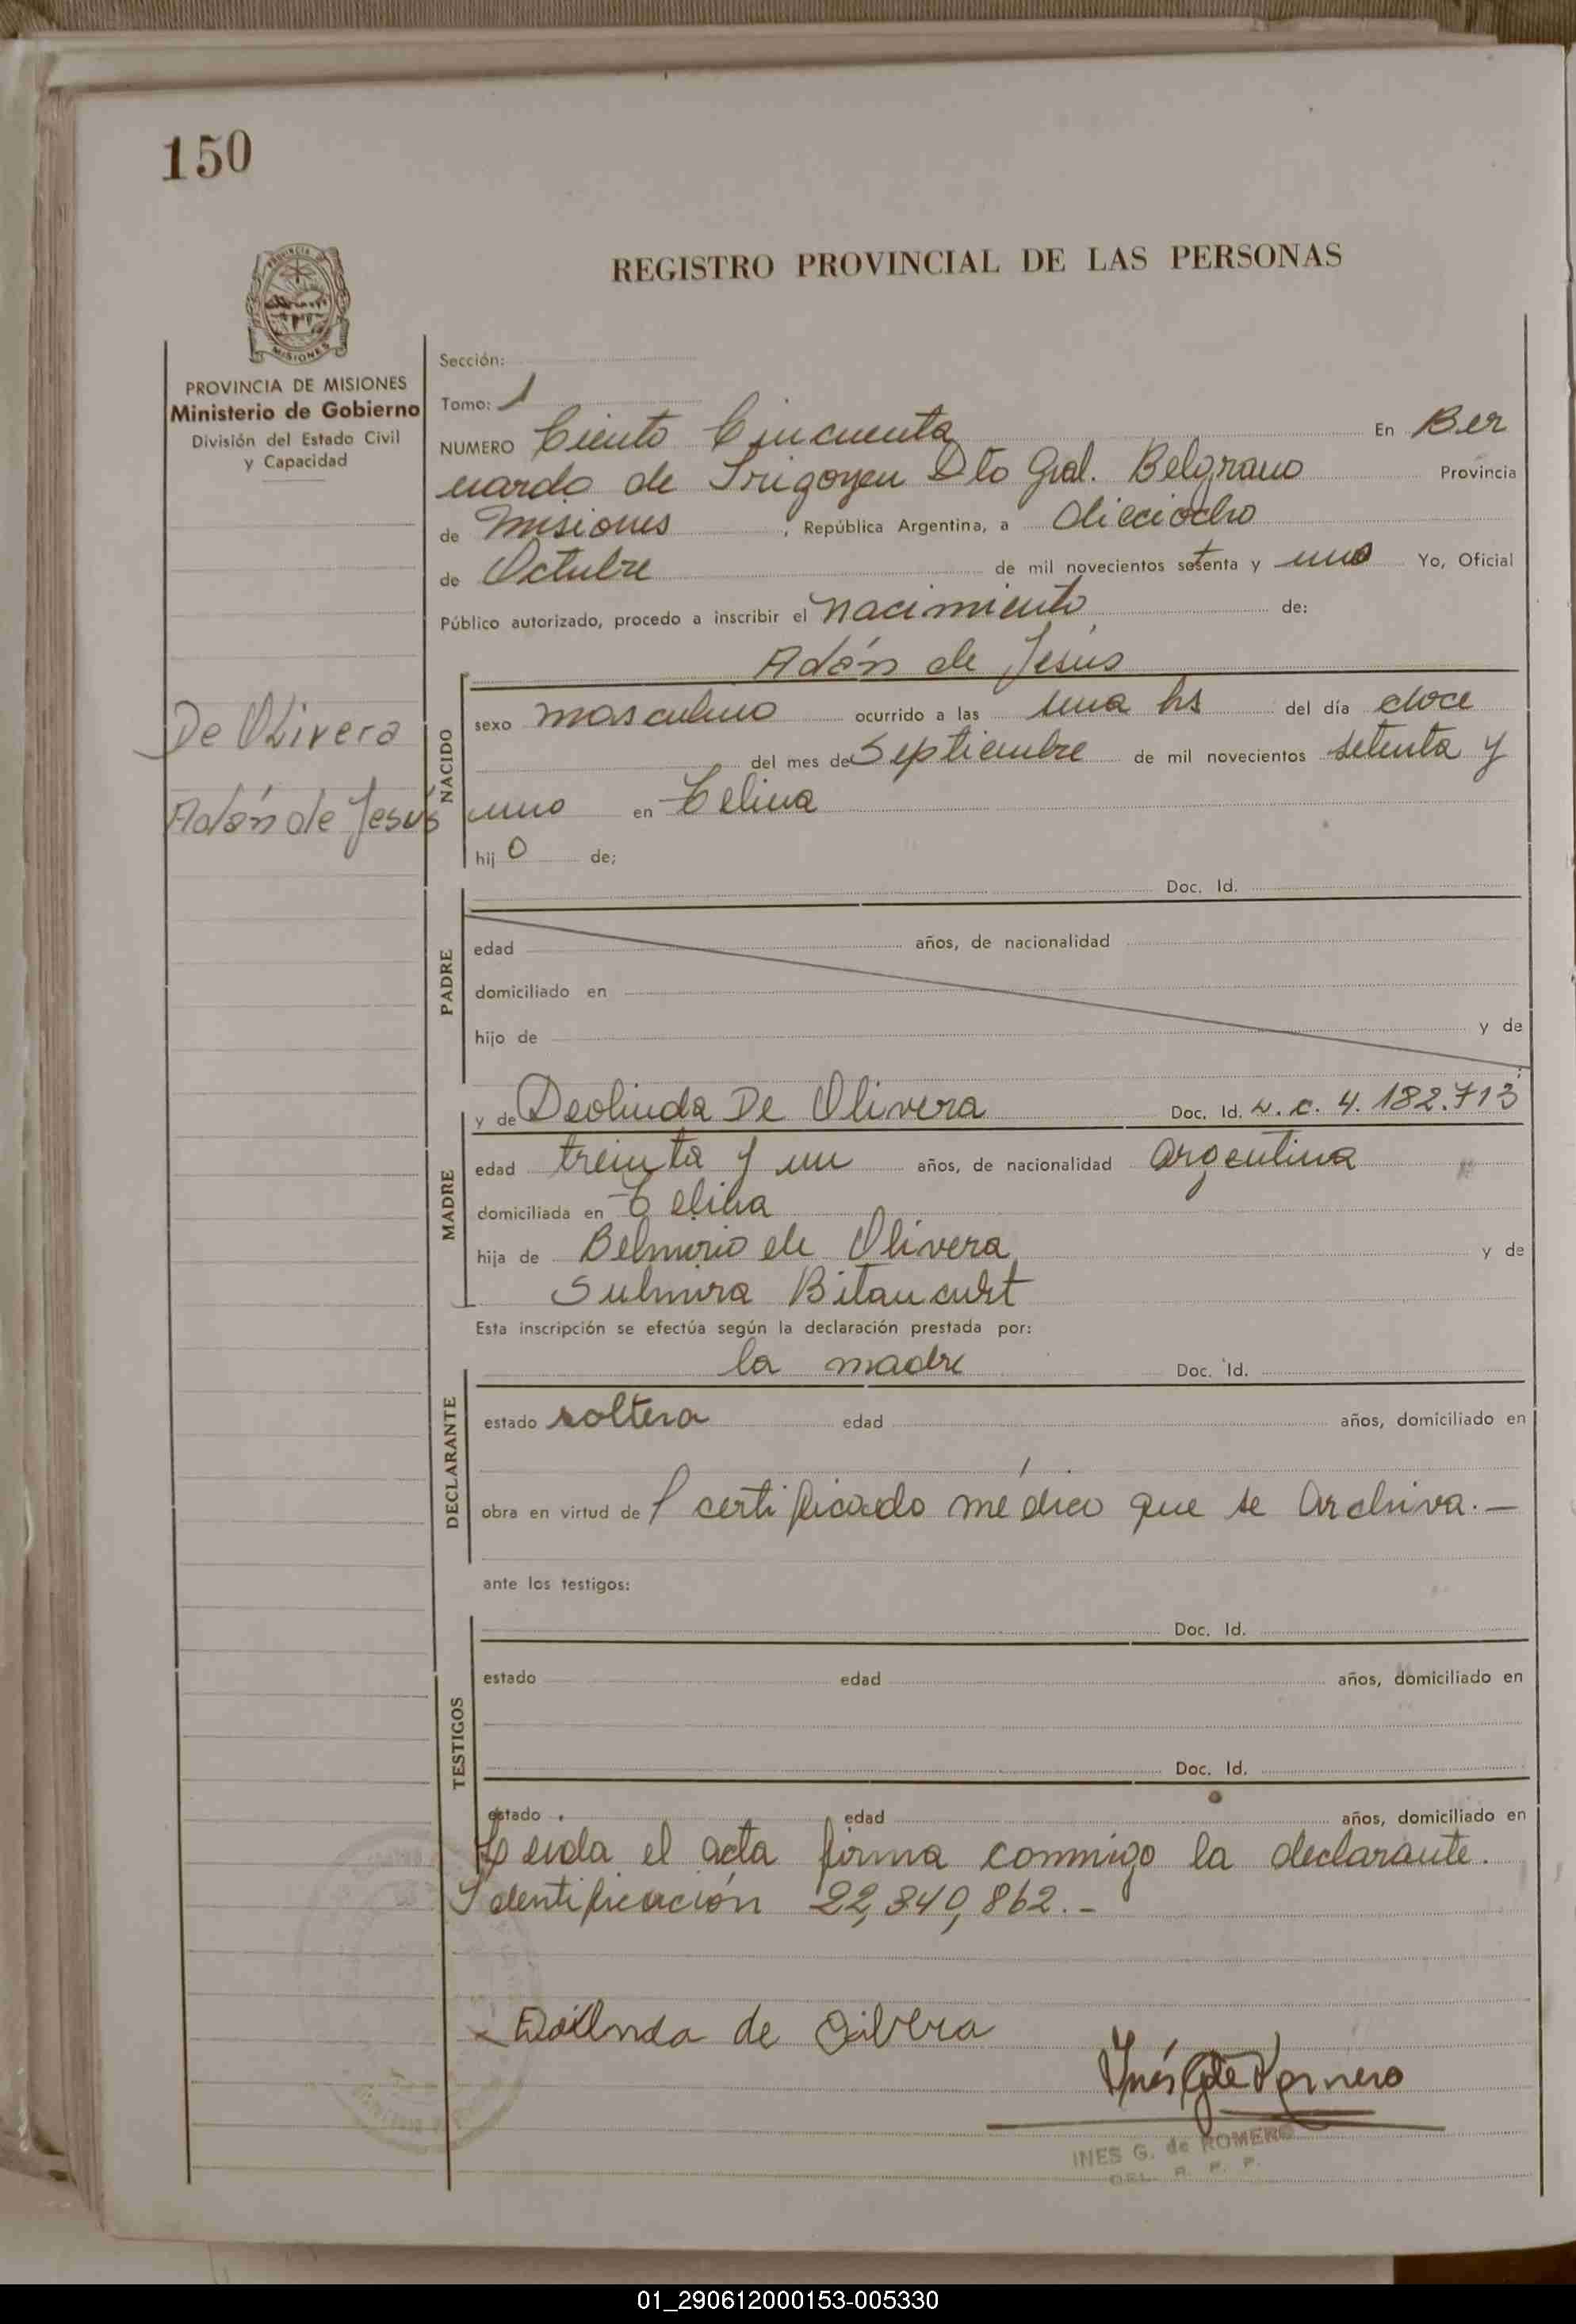 150
REGISTRO PROVINCIAL DE LAS PERSONAS
PROVINCIA DE
MISIONES
PROVINCIA DE MISIONES
Ministerio de Gobierno
División del Estado Civil
y Capacidad
De Olivera
Adán de Jesús
Sección:
Tomo: 1
NUMERO Ciento Cincuenta En Ber
nardo de Irigoyen Dto Gral. Belgrano Provincia
de Misiones, República Argentina, a dieciocho
de Octubre de mil novecientos setenta y uno Yo, Oficial
Público autorizado, procedo a inscribir el nacimiento de:
Adán de Jesús
NACIDO
sexo masculino ocurrido a las una hs del día doce
del mes de Septiembre de mil novecientos setenta y
uno en Celina
hijo de:
PADRE
Doc. Id.
edad años, de nacionalidad
domiciliado en
hijo de y de
MADRE
y de Deolinda De Olivera Doc. Id. L. C. 4.182.713
edad treinta y un años, de nacionalidad argentina
domiciliada en Celina
hija de Belmirio de Olivera y de
Sulmira Bitancurt
Esta inscripción se efectúa según la declaración prestada por:
DECLARANTE
la madre Doc. Id.
estado soltera edad años, domiciliado en
obra en virtud de certificado médico que se archiva.-
ante los testigos:
TESTIGOS
Doc. Id.
estado edad años, domiciliado en
Doc. Id.
estado edad años, domiciliado en
Leida el acta firma conmigo la declarante.
Identificación 22,340,862.-
de
Inés G de Romero
INES G. de ROMERO
DEL. R. P. P.
01_290612000153-005330